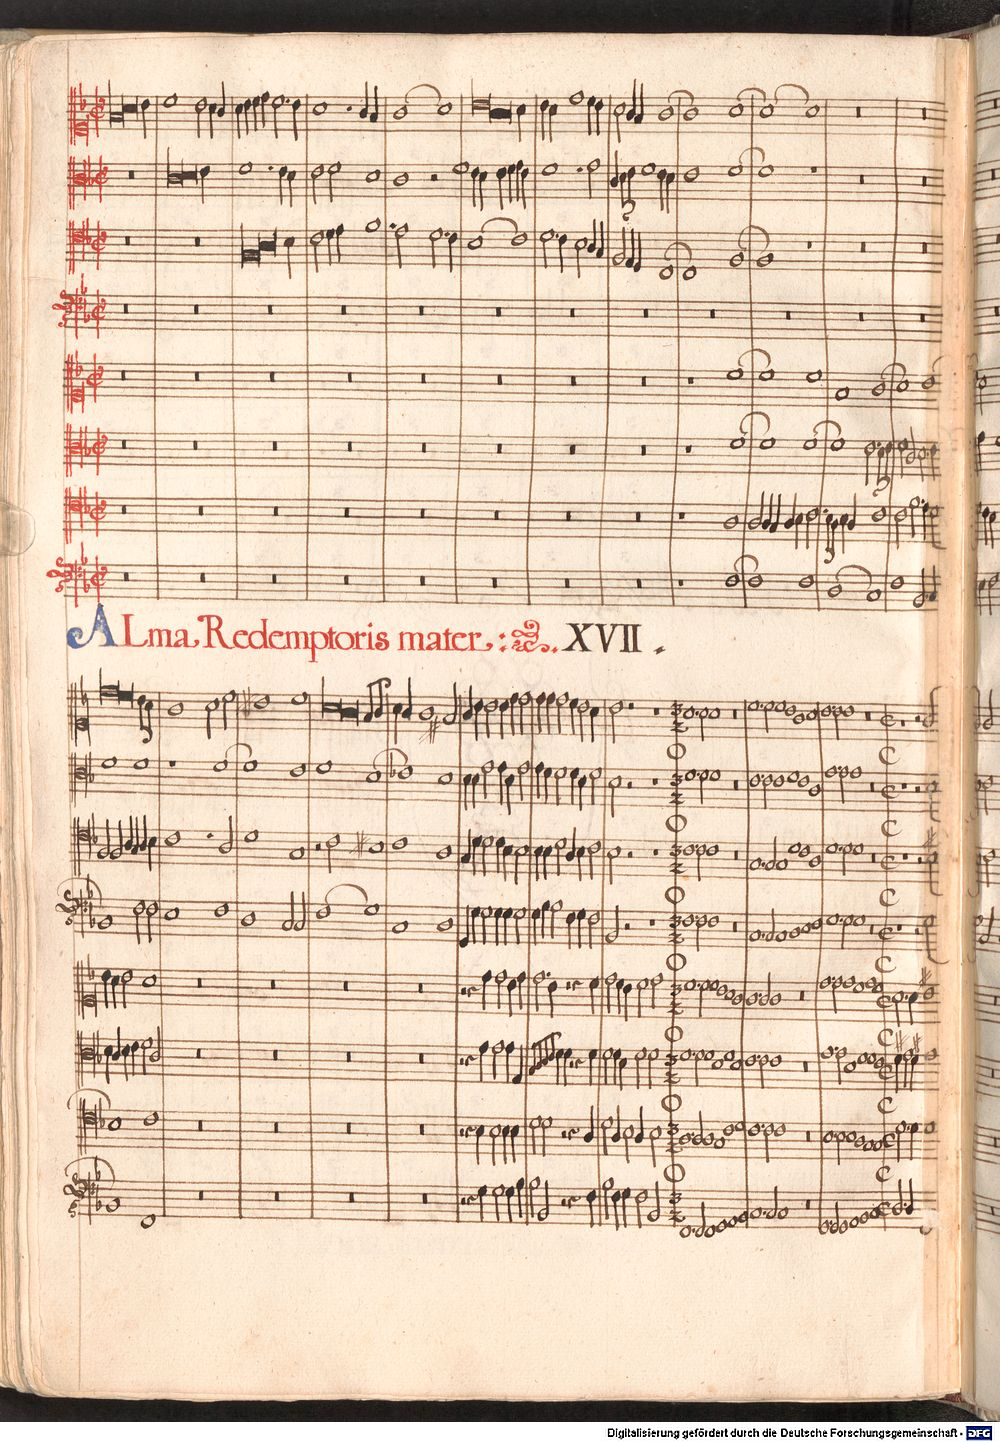 ALma Redemptoris mater. XVII.
Digitalisierung gefördert durch die Deutsche Forschungsgemeinschaft - DFG